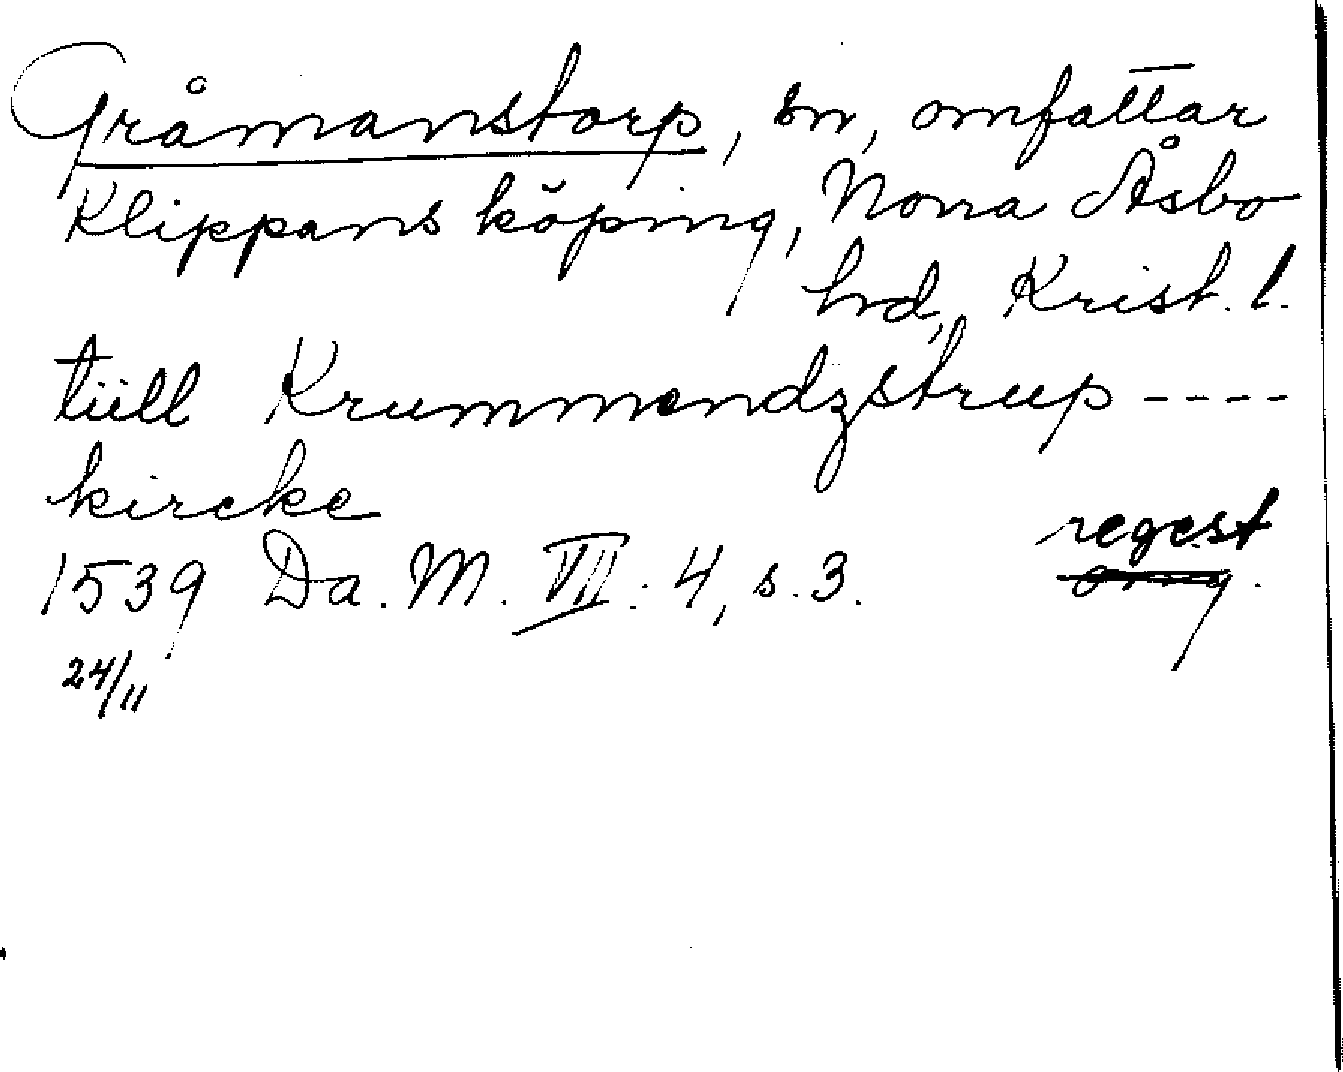 Gråmanstorp, sn, omfattar
Klippans köping, Norra Åsbo
hrd, Krist. l.
tiill Krummendzstrup ----
kircke
regest
1539 Da. M. VII: 4, s. 3. orig.
24/11